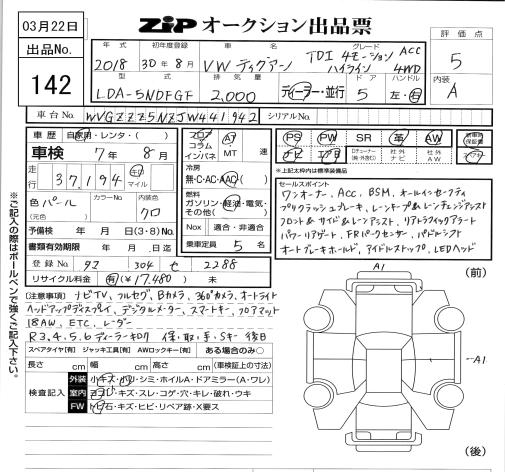 03月22日
ZiPオークション出品票
評価点
出品No.
年式 初年度登録 車名 グレード
2018 30年8月 VW ティグアン TDI 4モーション ACC ハイライン 4WD
5
142
型式 排気量 ドア ハンドル
内装
LDA-5NDFGF 2,000 ディーラー・並行 5 左・右
A
車台No. WVGZZZ5NZJW441942 シリアルNo.
車歴 自家用・レンタ・( )
フロア コラム インパネ A7 MT 速
PS PW SR 革 AW
車検 7年8月
ナビ エアB Dチューナー(純・社外C) 社外ナビ 社外AW
走行 37,194 キロ マイル
冷房 無・C・AC・AAC( )
※上記太枠内は標準装備品
燃料 ガソリン・軽油・電気・その他( )
セールスポイント
色 パール (元色) カラーNo. 内装色 クロ
ワンオーナー、ACC、BSM、オールインセーフティ
プリクラッシュブレーキ、レーンキープ&レーンチェンジアシスト
予備検 年 月 日(3・8) No.
Nox 適合・非適合
フロント&サイド&レーンアシスト、リアトラフィックアラート
書類有効期限 年 月 日迄
乗車定員 5名
パワーリアゲート、FRパークセンサー、パドルシフト
登録No. 304 せ 2288
オートブレーキホールド、アイドルストップ、LEDヘッド
リサイクル料金 有(¥17,480) 未
A1
(前)
(注意事項) ナビTV、フルセグ、Bカメラ、360°カメラ、オートライト
ヘッドアップディスプレイ、デジタルメーター、スマートキー、フロアマット
18AW、ETC、レーダー
R3.4.5.6ディーラーキロク 保・取・手・Sキー後日
スペアタイヤ[有] ジャッキ工具[有] AWロックキー[有] ある場合のみ○
A1
長さ cm 幅 cm 高さ cm (車検証上の寸法)
検査記入
外装 小キズ・凹・シミ・ホイルA・ドアミラー(A・ワレ)
室内 ヨゴレ・キズ・スレ・コゲ・穴・キレ・破れ・ウキ
FW トビ石・キズ・ヒビ・リペア跡・X要ス
(後)
※ご記入の際はボールペンで強くご記入下さい。